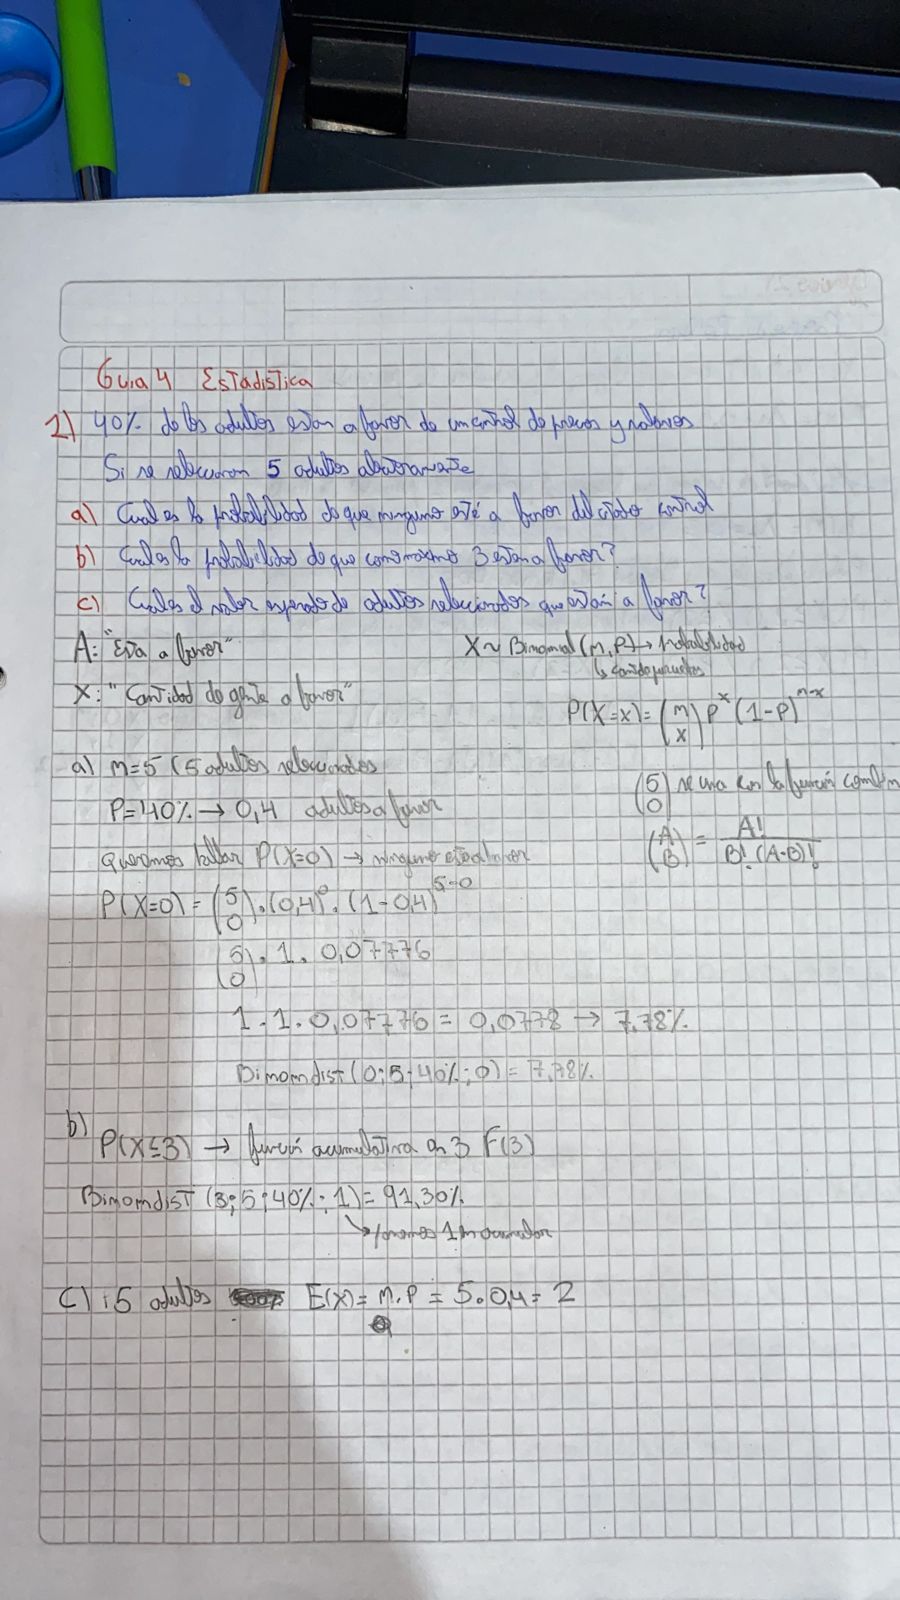 Guia 4 Estadistica
1) 40% de los adultos estan a favor de un control de precios y salarios
Si se seleccionan 5 adultos aleatoriamente
a) Cual es la probabilidad de que ninguno esté a favor del citado control
b) Cual es la probabilidad de que como maximo 3 esten a favor?
c) Cual es el valor esperado de adultos seleccionados que están a favor?
A: "Esta a favor"
X ~ Binomial (n, P) → Probabilidad
↳ cantidad
X: "Cantidad de gente a favor"
P(X=x) = (n x) P^x (1-P)^n-x
a) n=5 (5 adultos seleccionados
P=40% → 0,4 adultos a favor
(5 0) se usa con la función combin
Queremos hallar P(X=0) → ninguno esta a favor
(A B) = A! / B! (A-B)!
P(X=0) = (5 0) . (0,4)^0 . (1-0,4)^5-0
(5 0) . 1 . 0,07776
1 . 1 . 0,07776 = 0,0778 → 7,78%
Binomdist (0;5;40%;0) = 7,78%
b) P(X≤3) → función acumulativa en 3 F(3)
Binomdist (3;5;40%;1) = 91,30%
↘ ponemos 1
C) : 5 adultos E(X) = n.P = 5.0,4 = 2